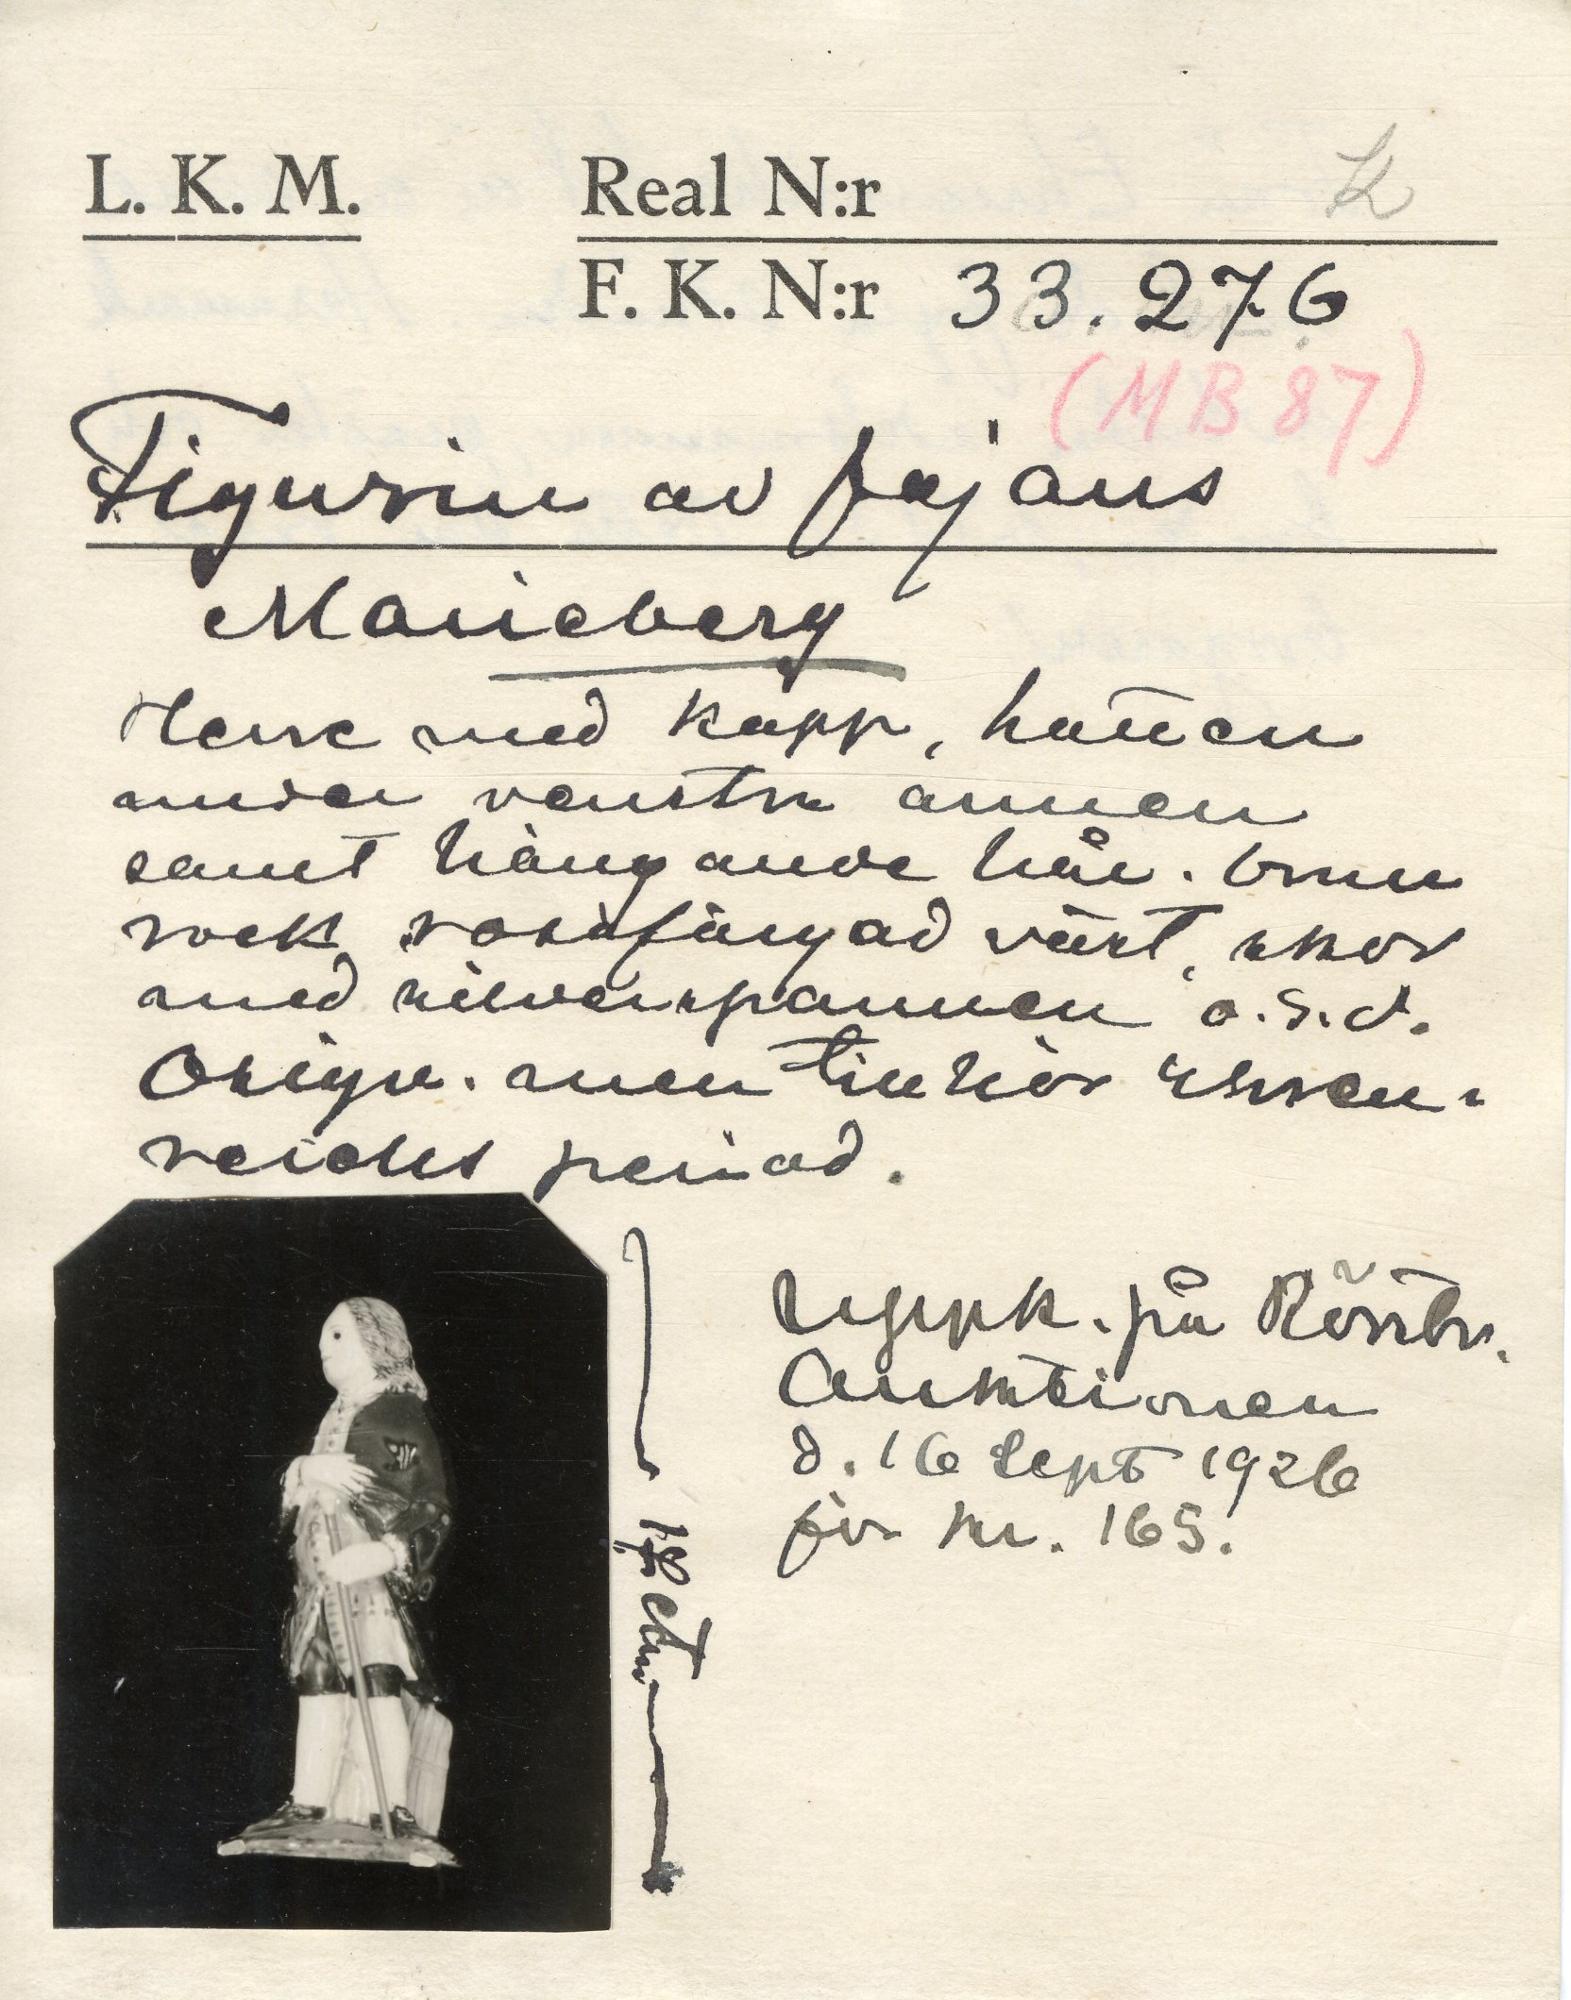 L. K. M.
Real N:r
K
F. K. N:r 33.276
(MB 87)
Figurin av fajans
Marieberg
Herre med käpp, hatten
under venstra armen
samt hängande hår. Brun
rock rosafärgad väst, skor
med silverspännen o.s.v.
Osign. men tillhör Ehren-
reichs period.
Uppk. på Rörstr.
Auktionen
d. 16 Sept 1926
för Nr. 165.